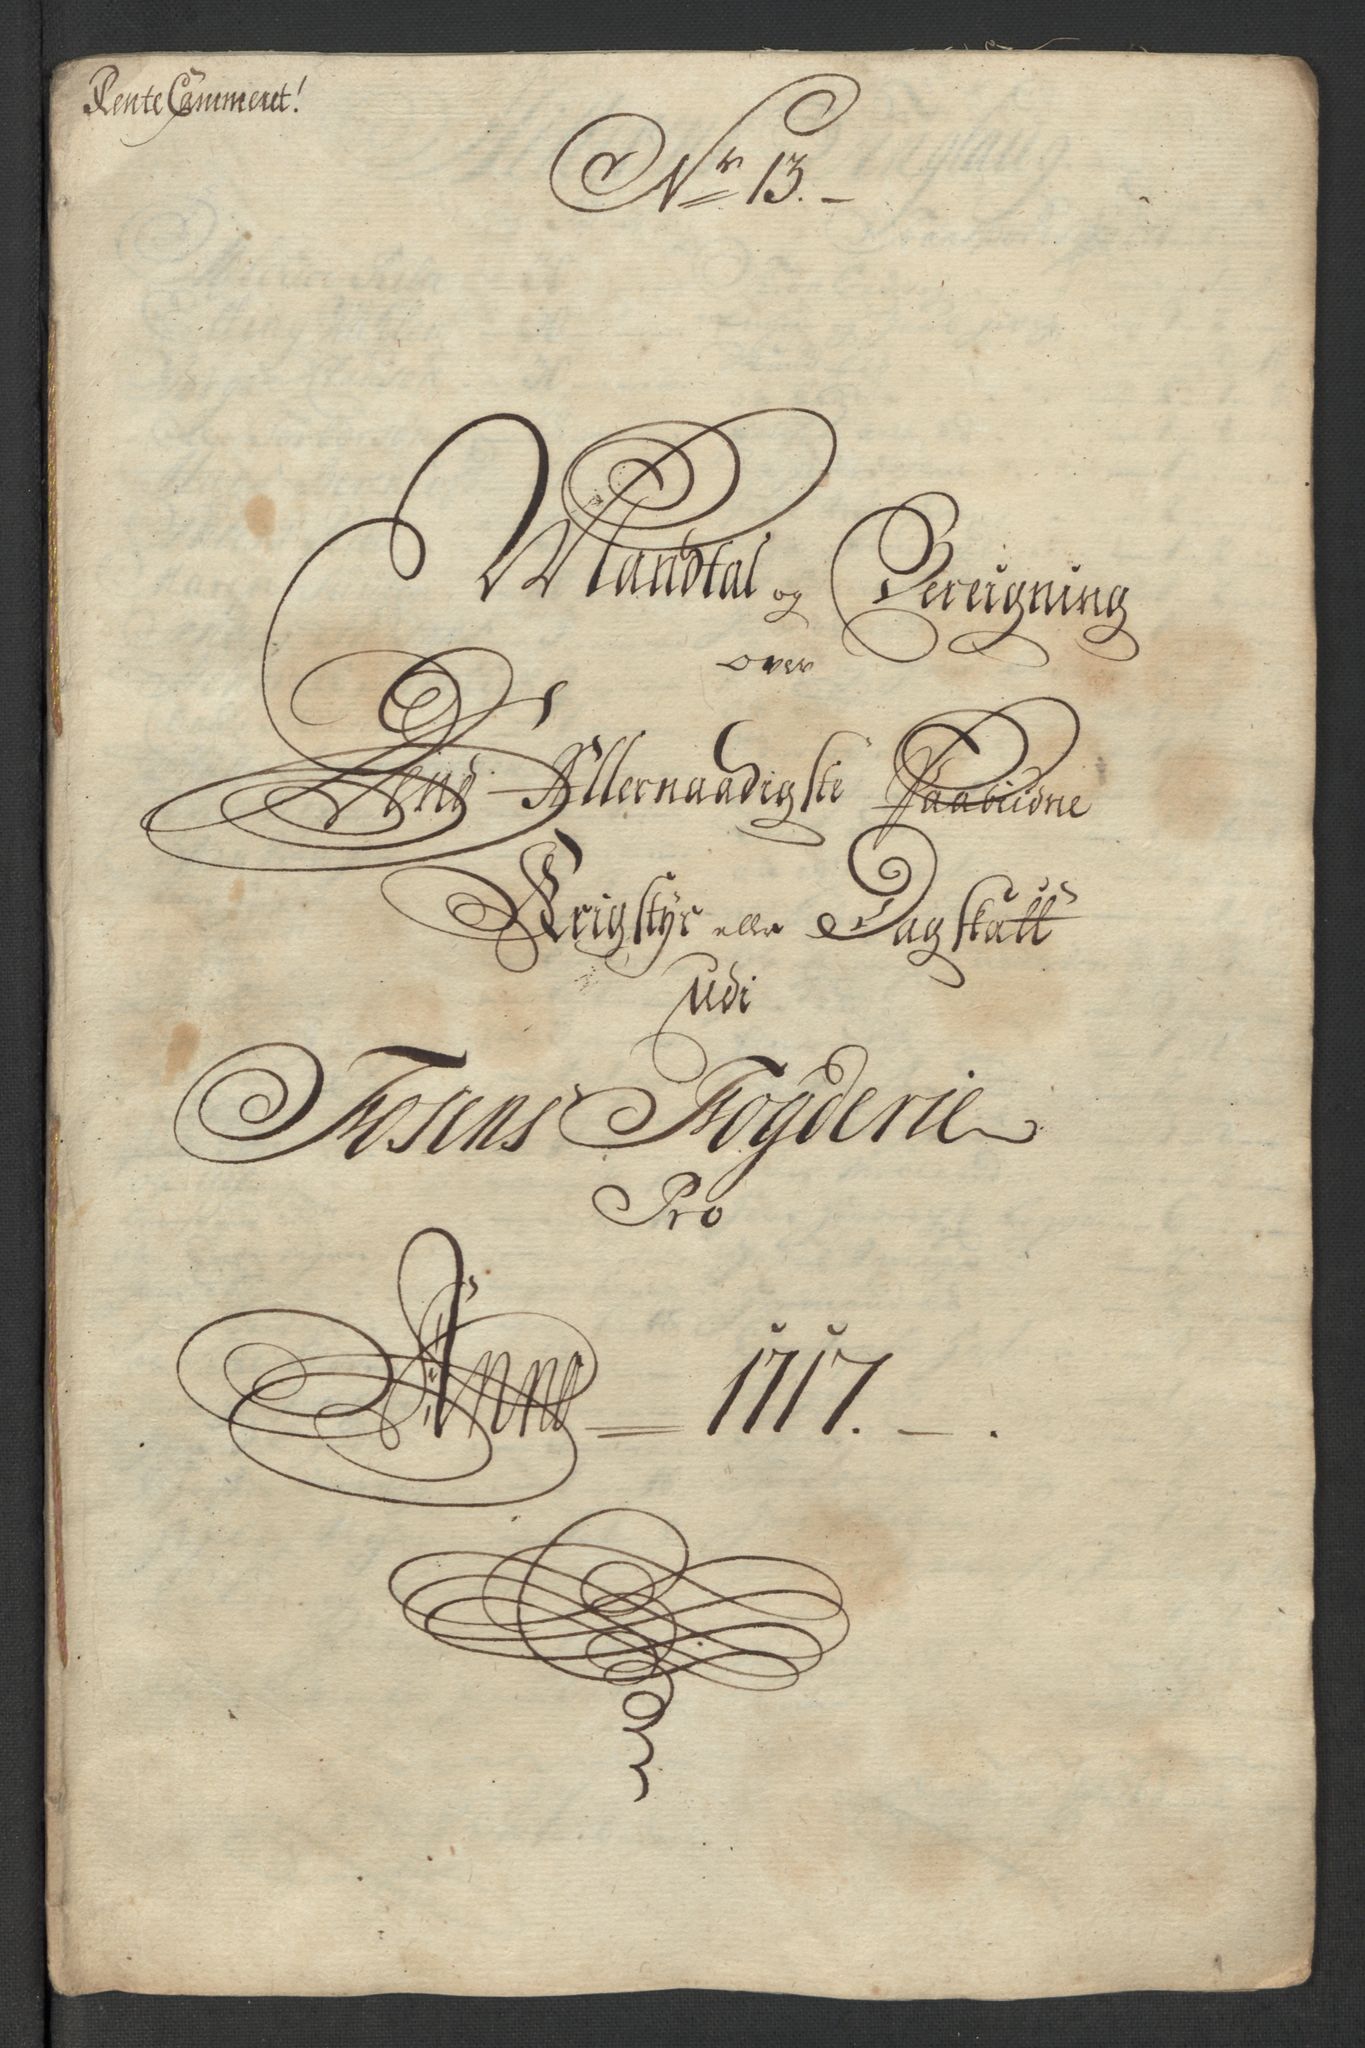 Rente Cammeret!
Nr 13.
Mandtal og Bereigning
over
Dend Allernaadigste Paabudne
Krigstyr eller Dagskatt
Udi
Fosens Fogderie
Pro
Anno 1717.